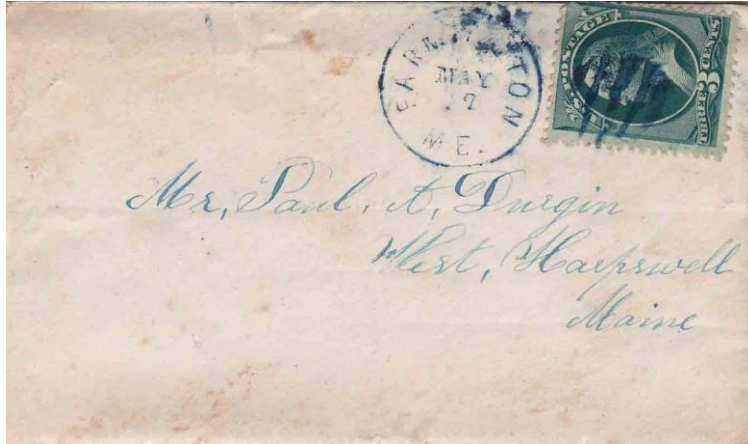 FARMINGTON
MAY
17
ME.
U.S. POSTAGE
3
THREE CENTS
Mr, Paul, A, Durgin
West, Harpswell
Maine